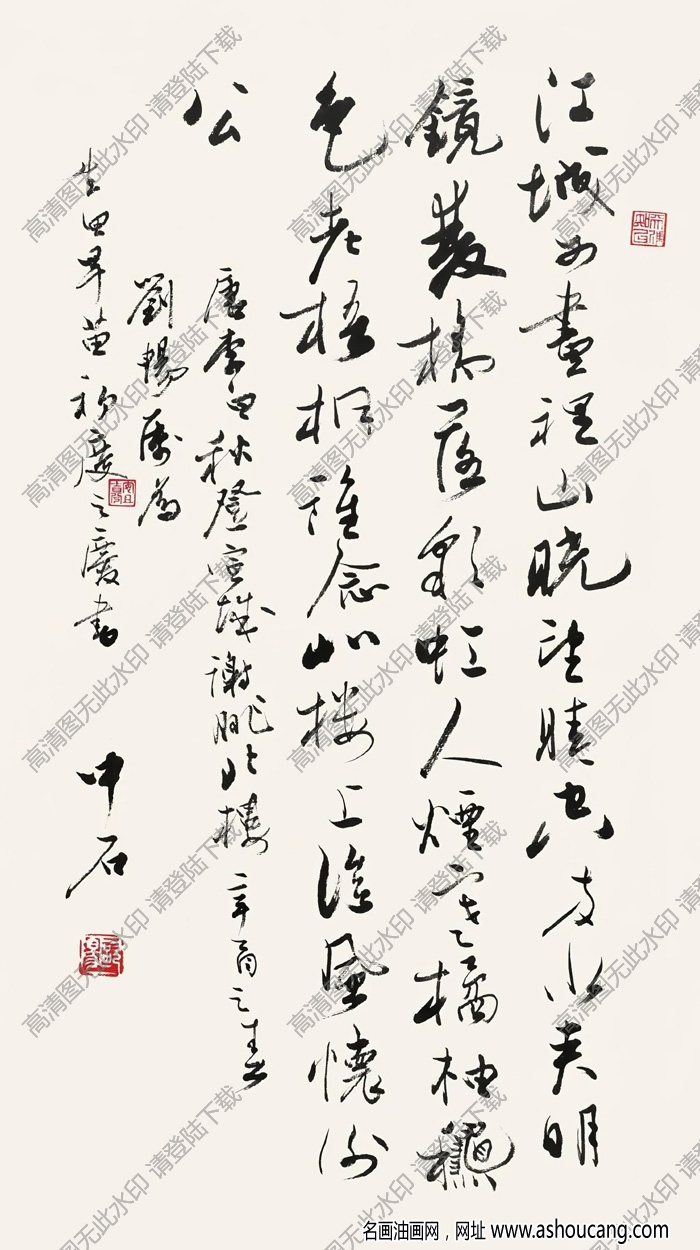 江城如畫裡山曉望晴空兩水夾明
鏡雙橋落彩虹人煙寒橘柚龝
色老梧桐誰念北樓上臨風懷謝
公
唐李白秋登宣城謝朓北樓辛酉之春
劉暢屬為
生田早苗初度之慶書
中石
高清图无此水印 请登陆下载
名画油画网，网址 www.ashoucang.com